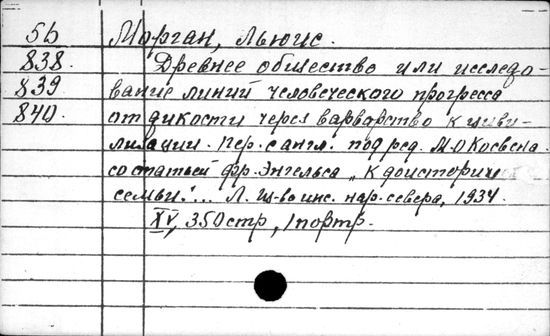 5b Морган, Льюис.
838. Древнее общество или исследо-
839. вание линий человеческого прогресса
840. от дикости через варварство к циви-
лизации. Пер. с англ. под ред. М.О Косвена.
со статьей Фр. Энгельса „К доистории
семьи."... Л. Из-во инс. нар. севера, 1934.
XV, 350 стр, 1 портр.